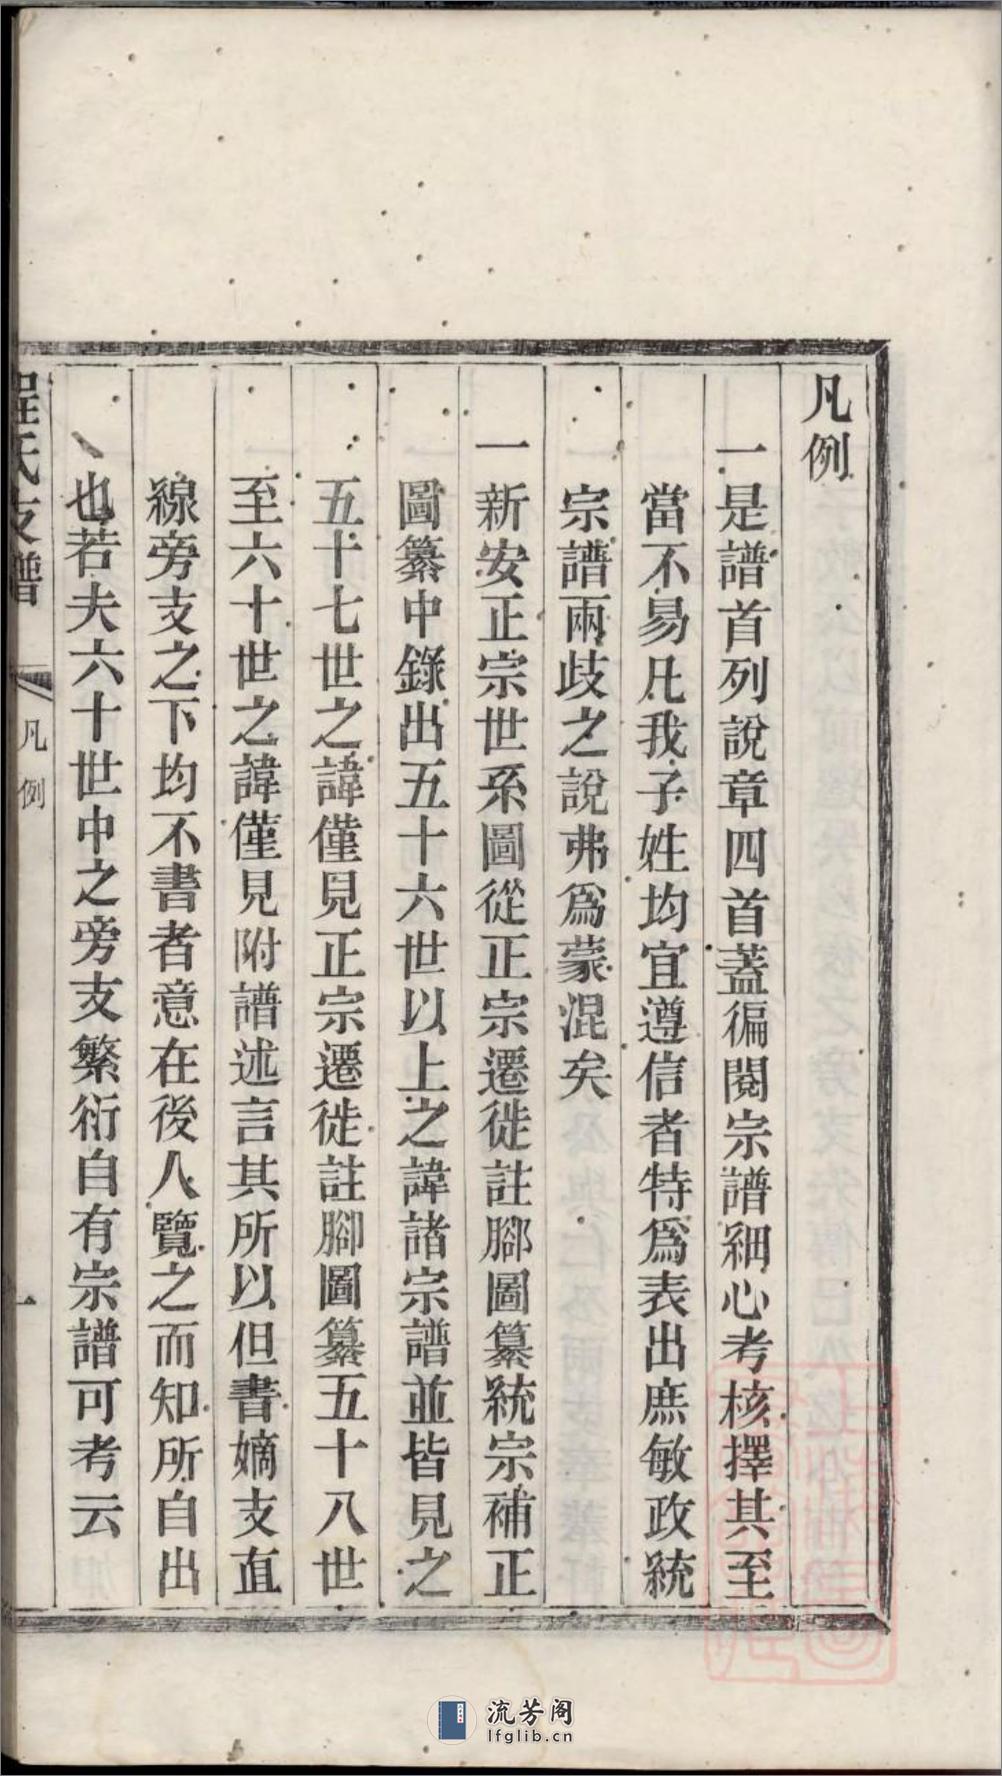 凡例
一是譜首列說章四首蓋徧閱宗譜細心考核擇其至
當不易凡我子姓均宜遵信者特爲表出庶敏政統
宗譜兩歧之說弗爲蒙混矣
一新安正宗世系圖從正宗遷徙註腳圖纂統宗補正
圖纂中錄出五十六世以上之諱諸宗譜並皆見之
五十七世之諱僅見正宗遷徙註腳圖纂五十八世
至六十世之諱僅見附譜述言其所以但書嫡支直
線旁支之下均不書者意在後人覽之而知所自出
也若夫六十世中之旁支繁衍自有宗譜可考云
程氏支譜
凡例
一
流芳阁
lfglib.cn